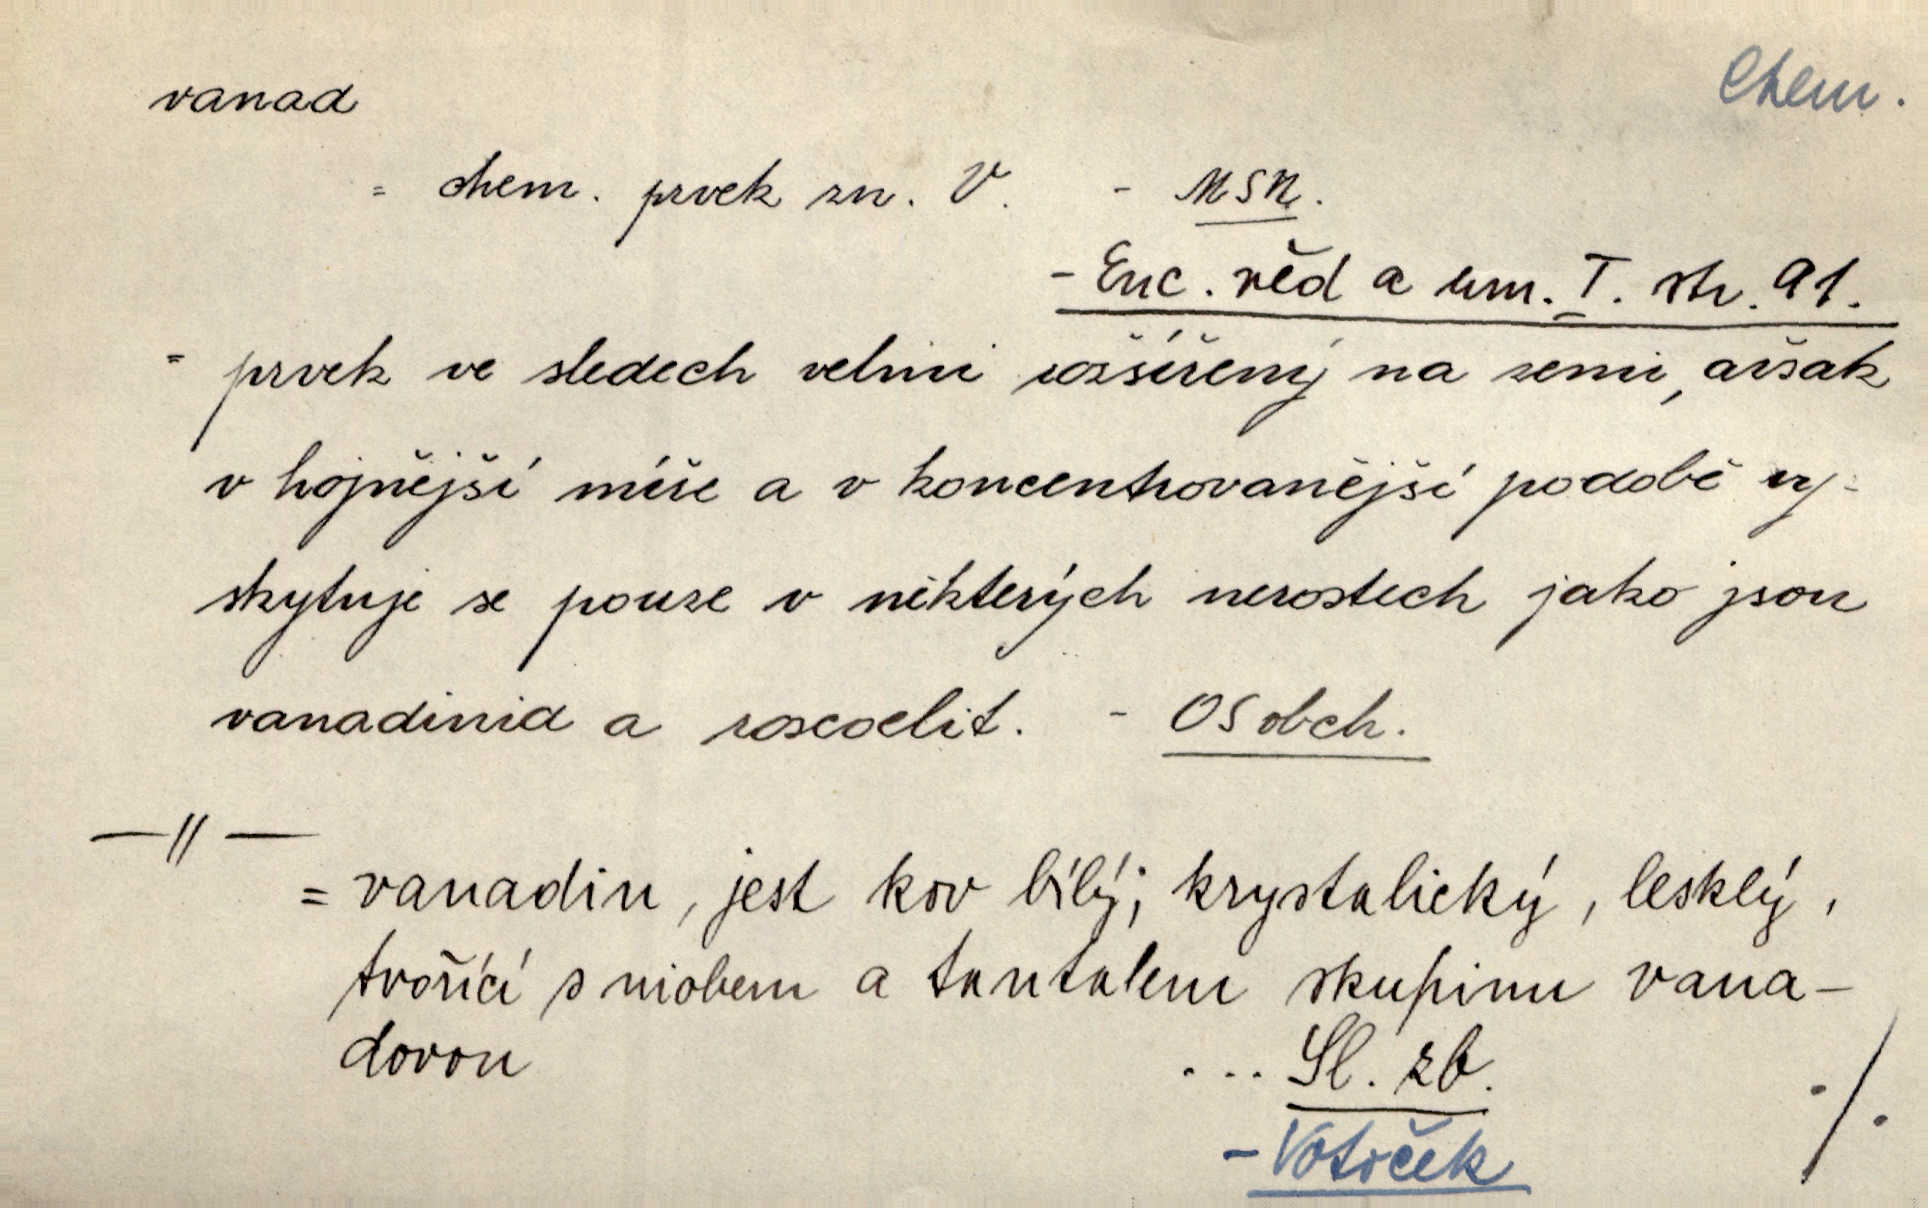 vanad
Chem.
= chem. prvek zn. V. - MSN.
- Enc. věd a um. I. str. 91.
= prvek ve sledech velmi rozšířený na zemi, avšak
v hojnější míře a v koncentrovanější podobě vy-
skytuje se pouze v některých nerostech jako jsou
vanadinid a roscoelit. - OSobch.
—〃—
= vanadin, jest kov bílý; krystalický, lesklý,
tvořící s niobem a tantalem skupinu vana-
dovou ... Sl. zb.
- Votoček ./.